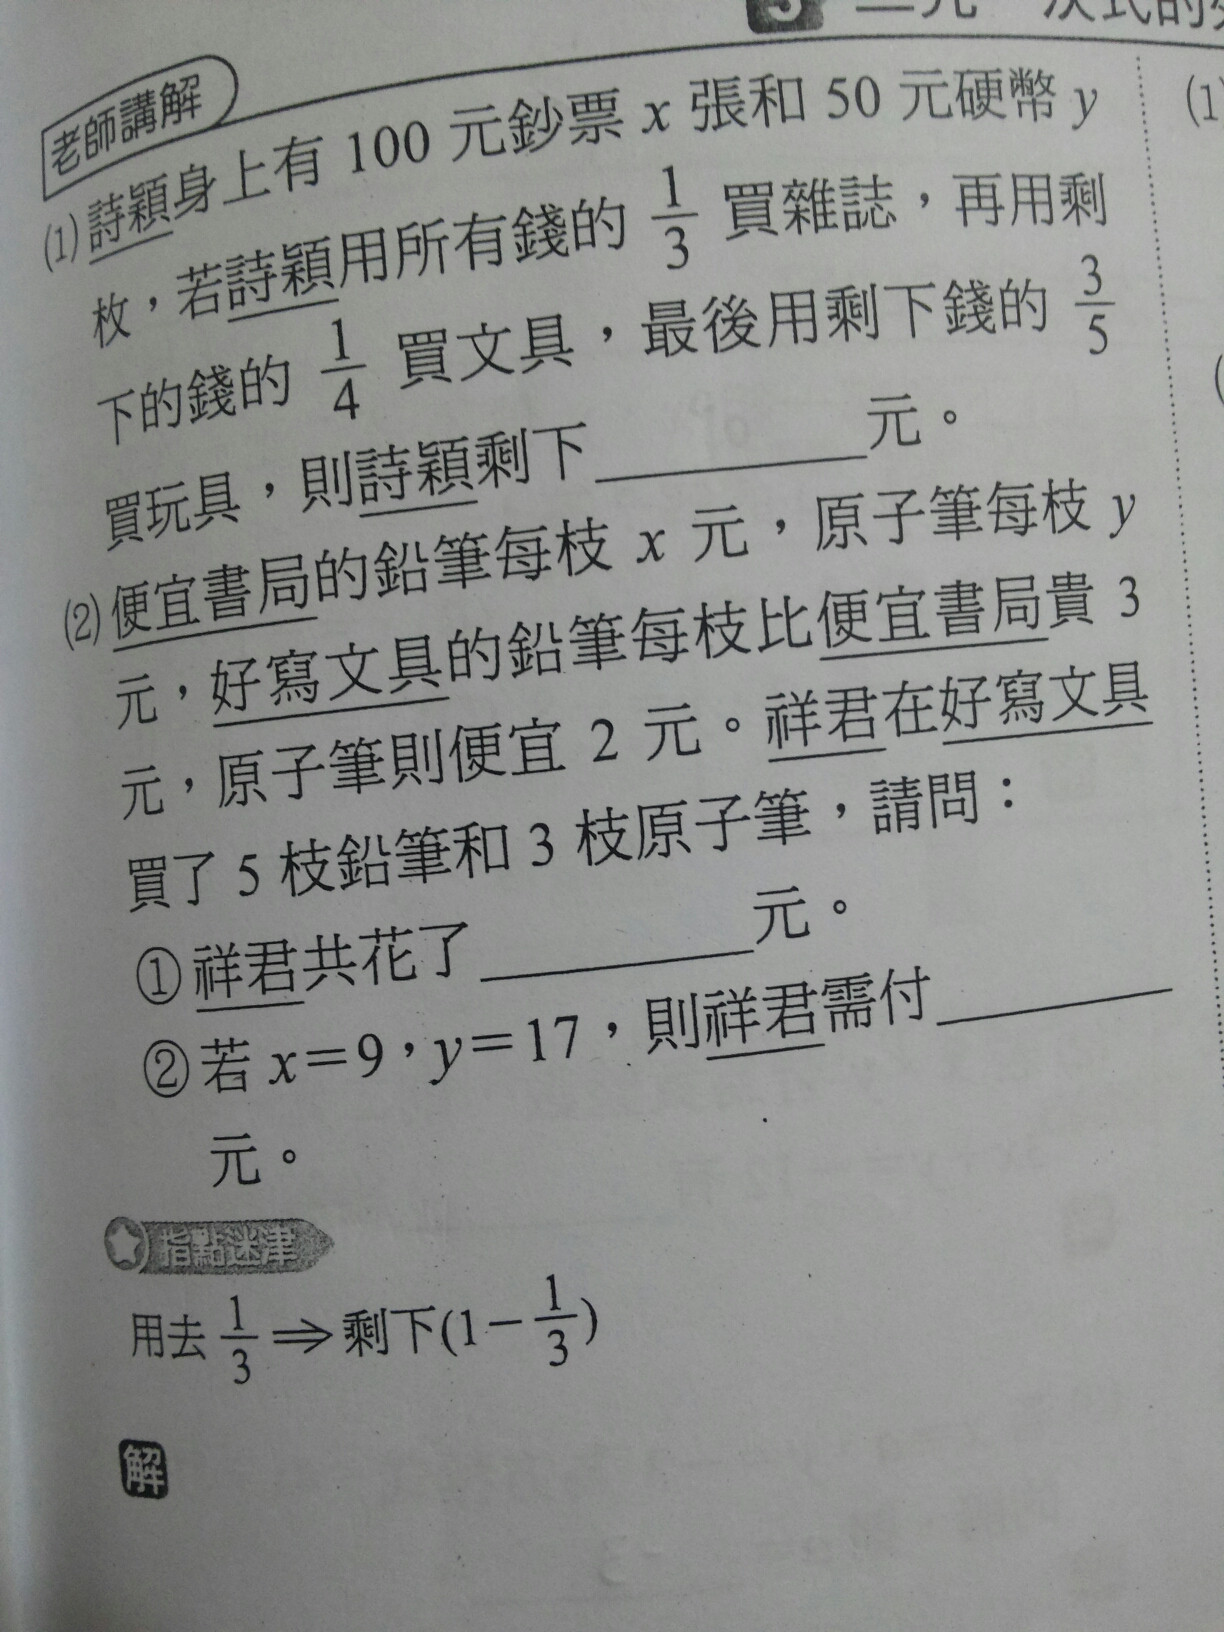 3 二元一次式的
老師講解
(1) 詩穎身上有 100 元鈔票 x 張和 50 元硬幣 y
枚，若詩穎用所有錢的 1/3 買雜誌，再用剩
下的錢的 1/4 買文具，最後用剩下錢的 3/5
買玩具，則詩穎剩下＿＿＿＿元。
(2) 便宜書局的鉛筆每枝 x 元，原子筆每枝 y
元，好寫文具的鉛筆每枝比便宜書局貴 3
元，原子筆則便宜 2 元。祥君在好寫文具
買了 5 枝鉛筆和 3 枝原子筆，請問：
① 祥君共花了＿＿＿＿元。
② 若 x＝9，y＝17，則祥君需付＿＿＿＿
元。
指點迷津
用去 1/3 ⇒ 剩下(1－1/3)
解
(1)